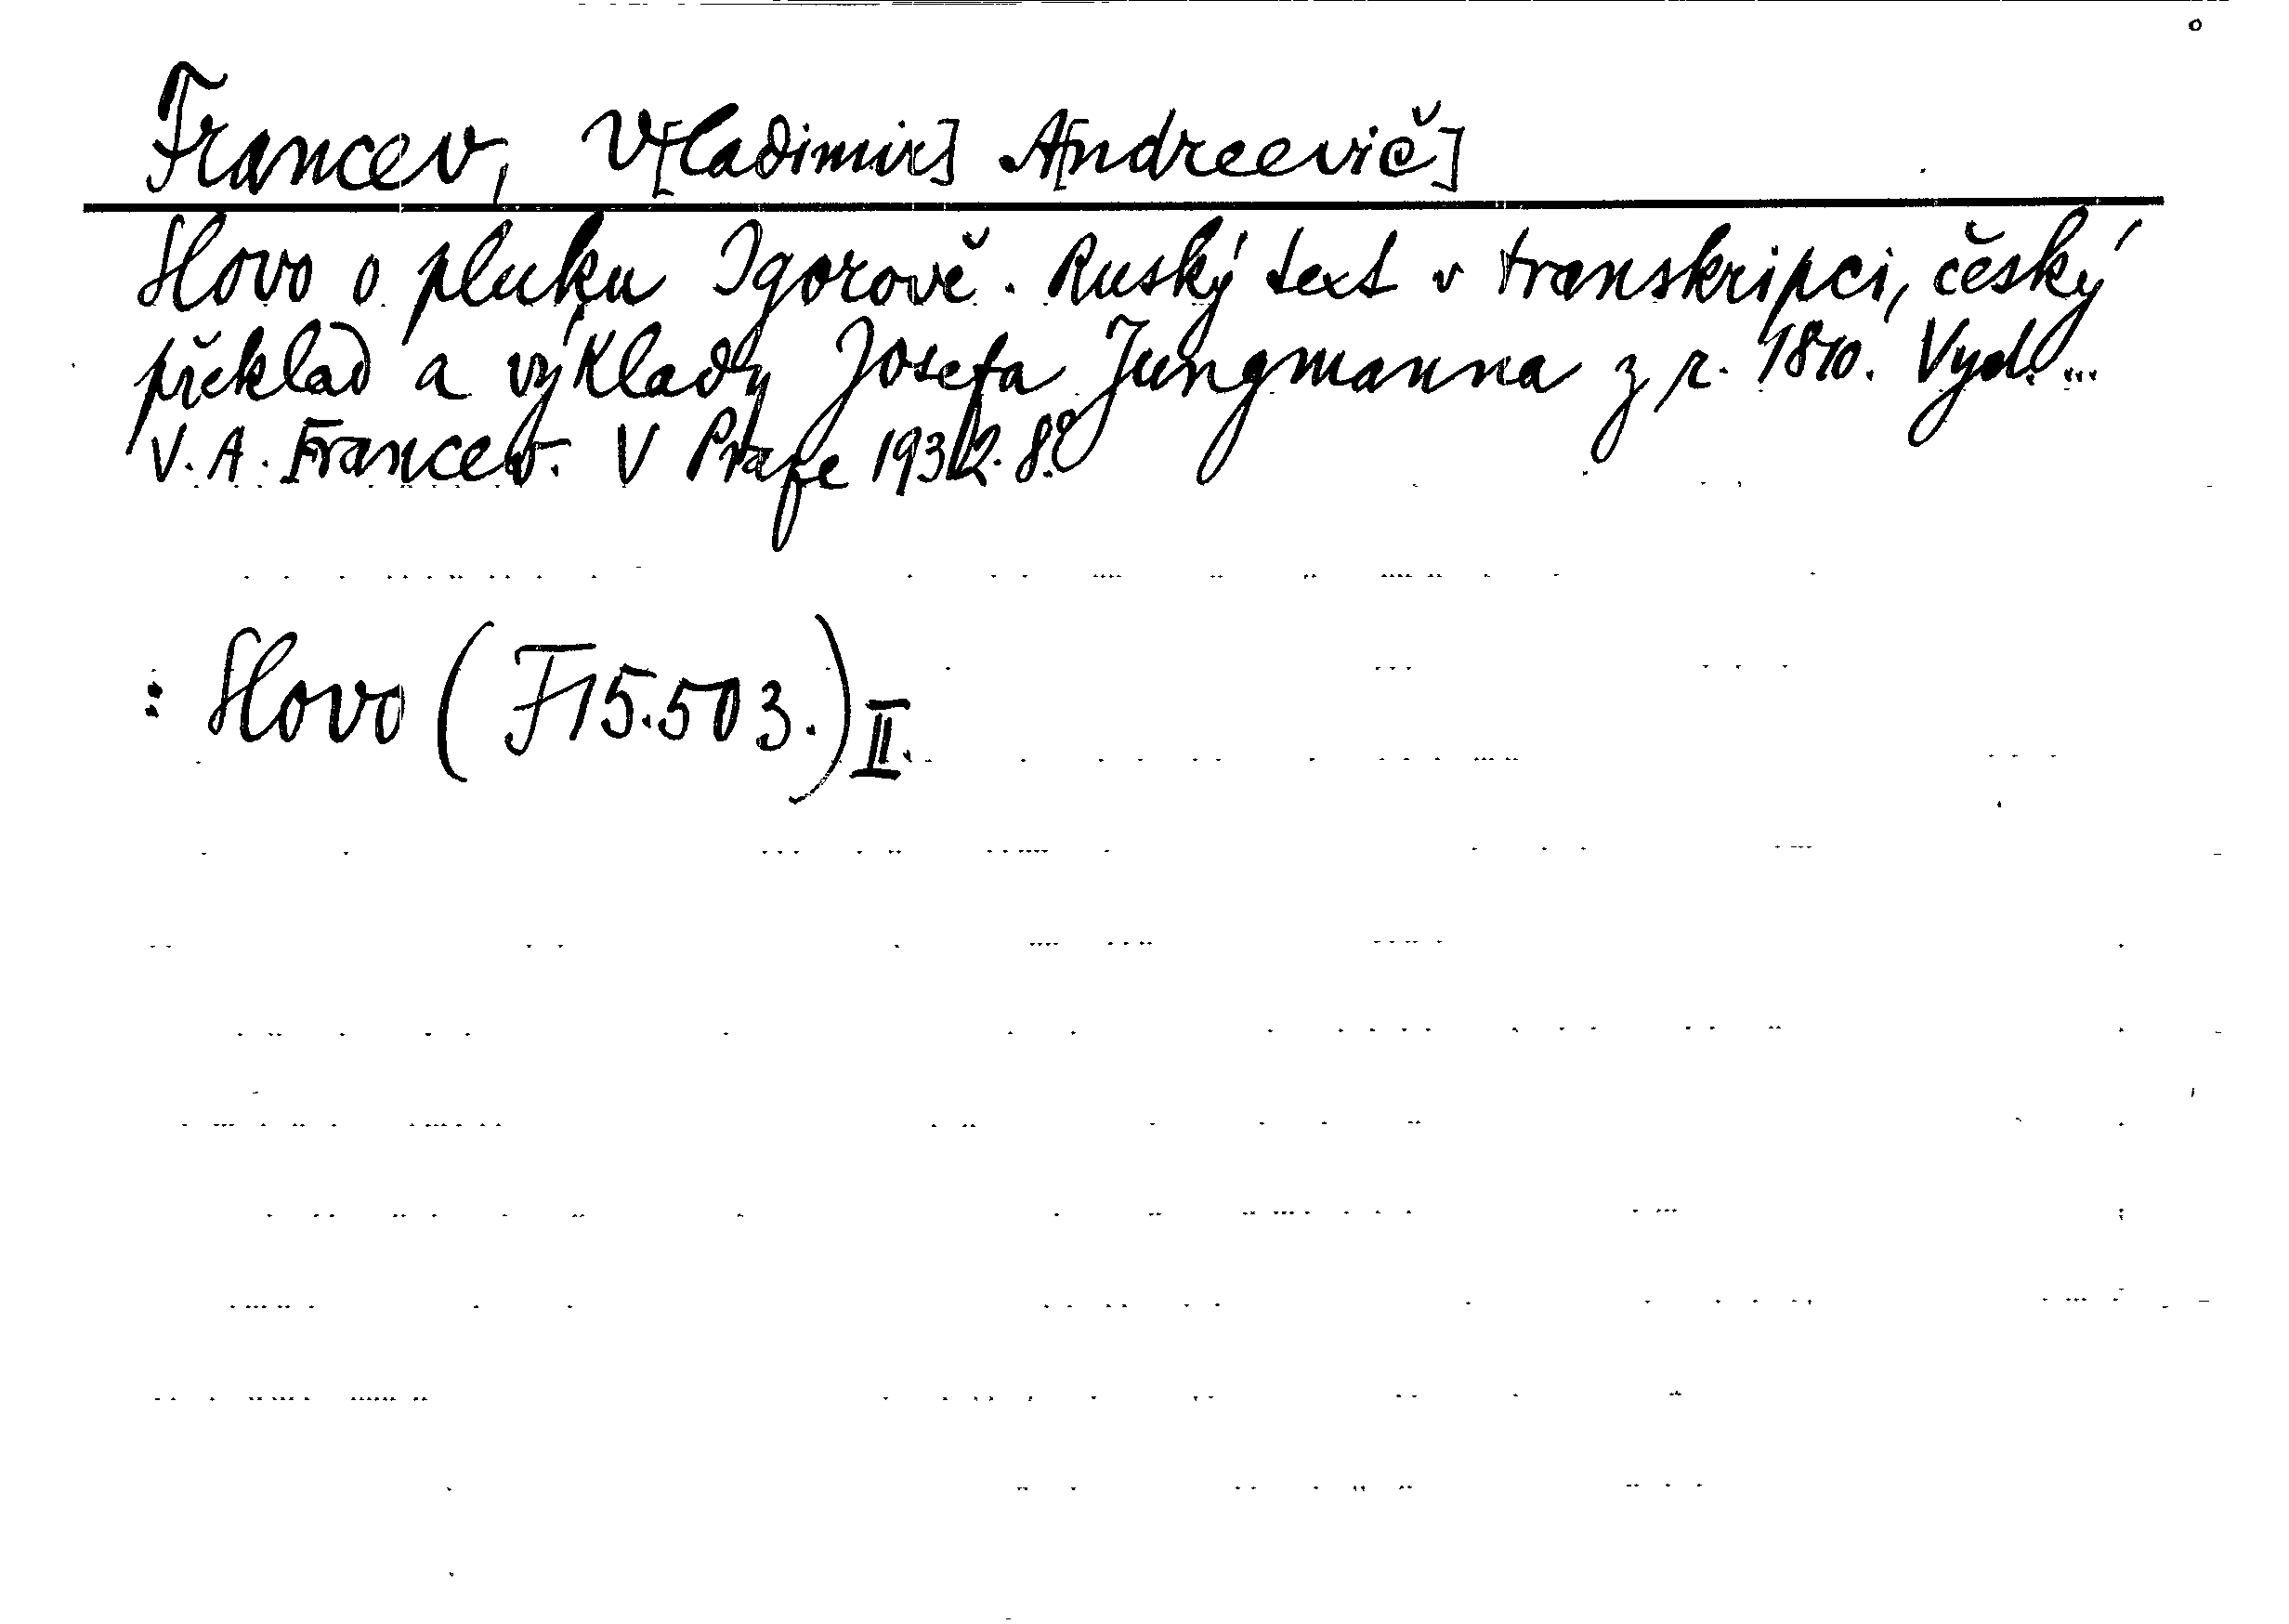 Francev, V[ladimir] A[ndreevič]
Slovo o pluku Igorově. Ruský text v transkripci, český
překlad a výklady Josefa Jungmanna z r. 1810. Vyd. ...
V. A. Francev. V Praze 1932. 8.º
: Slovo (F 15.503.) II.